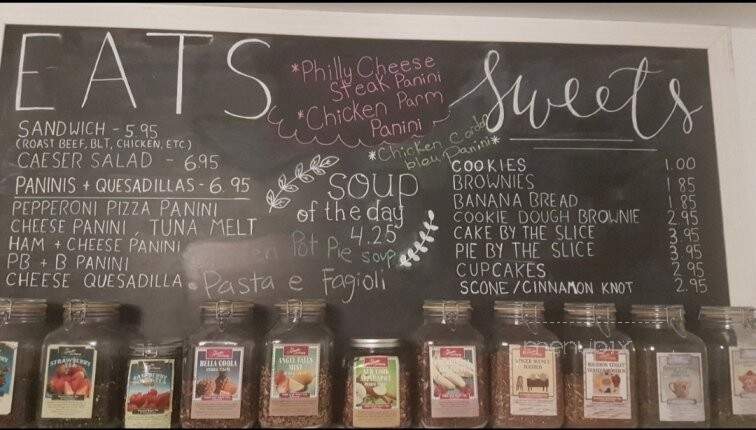 EATS
SANDWICH - 5.95
(ROAST BEEF, BLT, CHICKEN, ETC)
CAESER SALAD - 6.95
PANINIS + QUESADILLAS - 6.95
PEPPERONI PIZZA PANINI
CHEESE PANINI, TUNA MELT
HAM + CHEESE PANINI
PB + B PANINI
CHEESE QUESADILLA
*Philly Cheese
Steak Panini
*Chicken Parm
Panini
*Chicken Cordon
bleu Panini*
soup
of the day
4.25
Pot Pie soup
Pasta e Fagioli
Sweets
COOKIES 1.00
BROWNIES 1.85
BANANA BREAD 1.85
COOKIE DOUGH BROWNIE 2.95
CAKE BY THE SLICE 3.95
PIE BY THE SLICE 3.95
CUPCAKES 2.95
SCONE/CINNAMON KNOT 2.95
STRAWBERRY
RASPBERRY
BELLA COOLA
ANGEL FALLS
MIST
NEW YORK
GINGER BOUNCE
BOURBON STREET
menupix